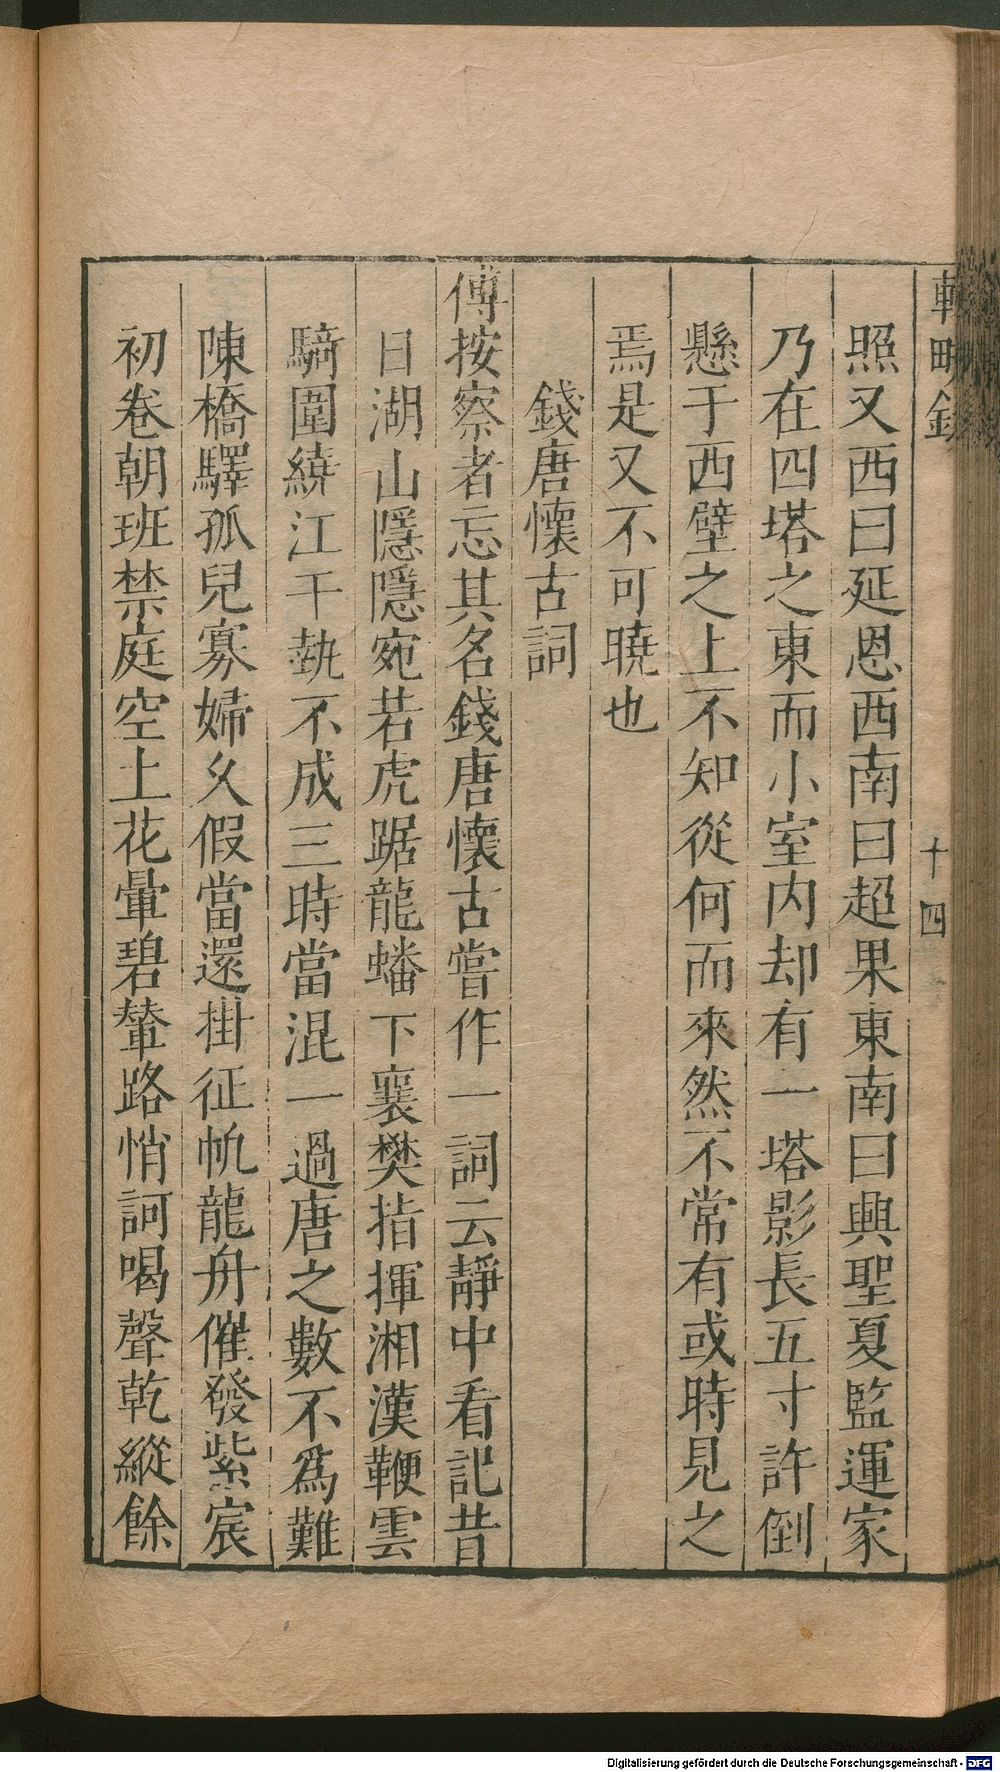 輟畊錄
十四
照又西曰延恩西南曰超果東南曰興聖夏監運家
乃在四塔之東而小室内却有一塔影長五寸許倒
懸于西壁之上不知從何而來然不常有或時見之
焉是又不可曉也
錢唐懷古詞
傅按察者忘其名錢唐懷古嘗作一詞云靜中看記昔
日湖山隱隱宛若虎踞龍蟠下襄樊指揮湘漢鞭雲
騎圍繞江干執不成三時當混一過唐之數不爲難
陳橋驛孤兒寡婦乆假當還掛征帆龍舟催發紫宸
初卷朝班禁庭空土花暈碧輦路悄訶喝聲乾縱餘
Digitalisierung gefördert durch die Deutsche Forschungsgemeinschaft - DFG